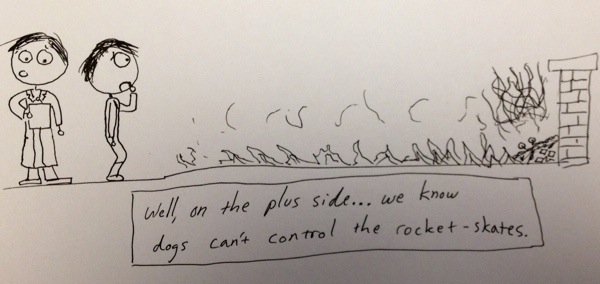 Well, on the plus side... we know
dogs can't control the rocket-skates.